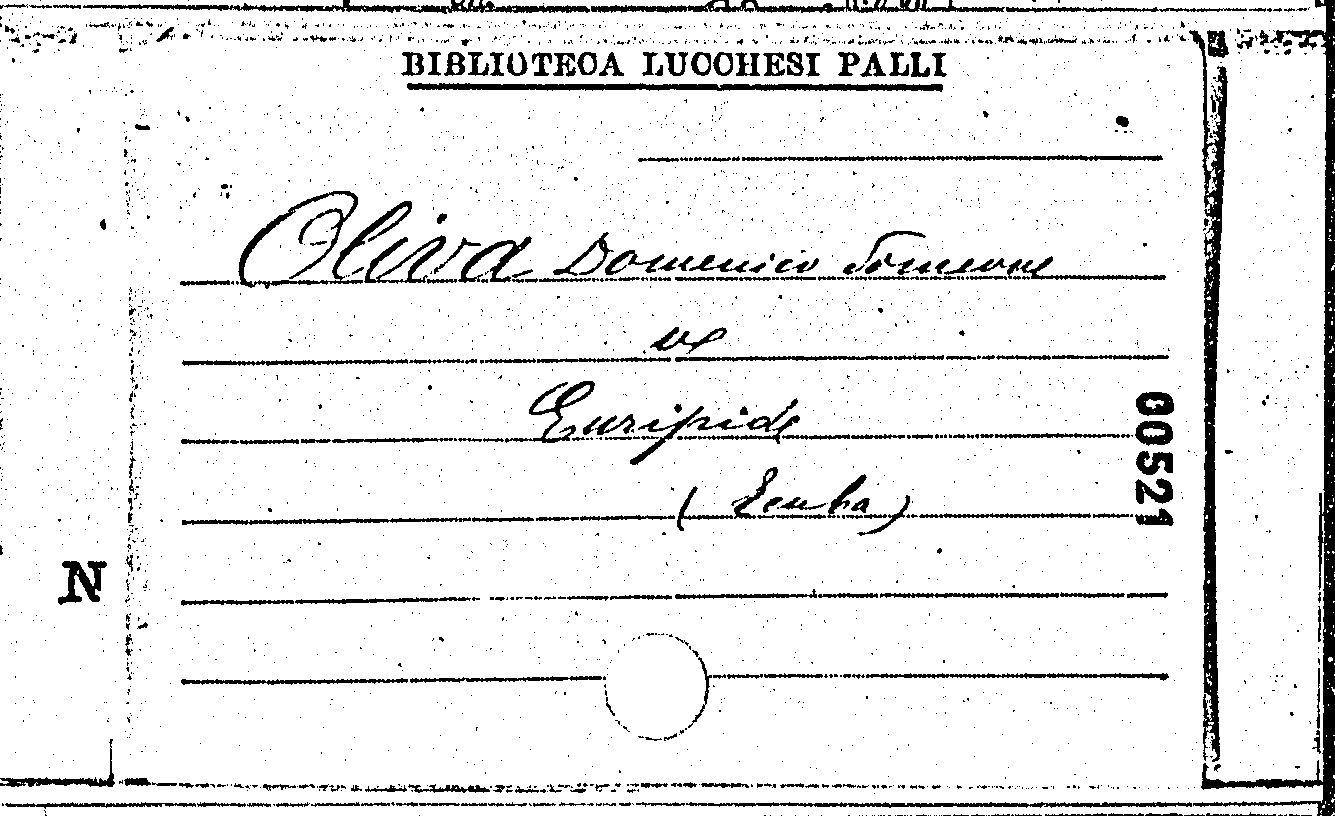 BIBLIOTECA LUCCHESI PALLI
Oliva Domenico
Euripide
(Ecuba)
00521
N